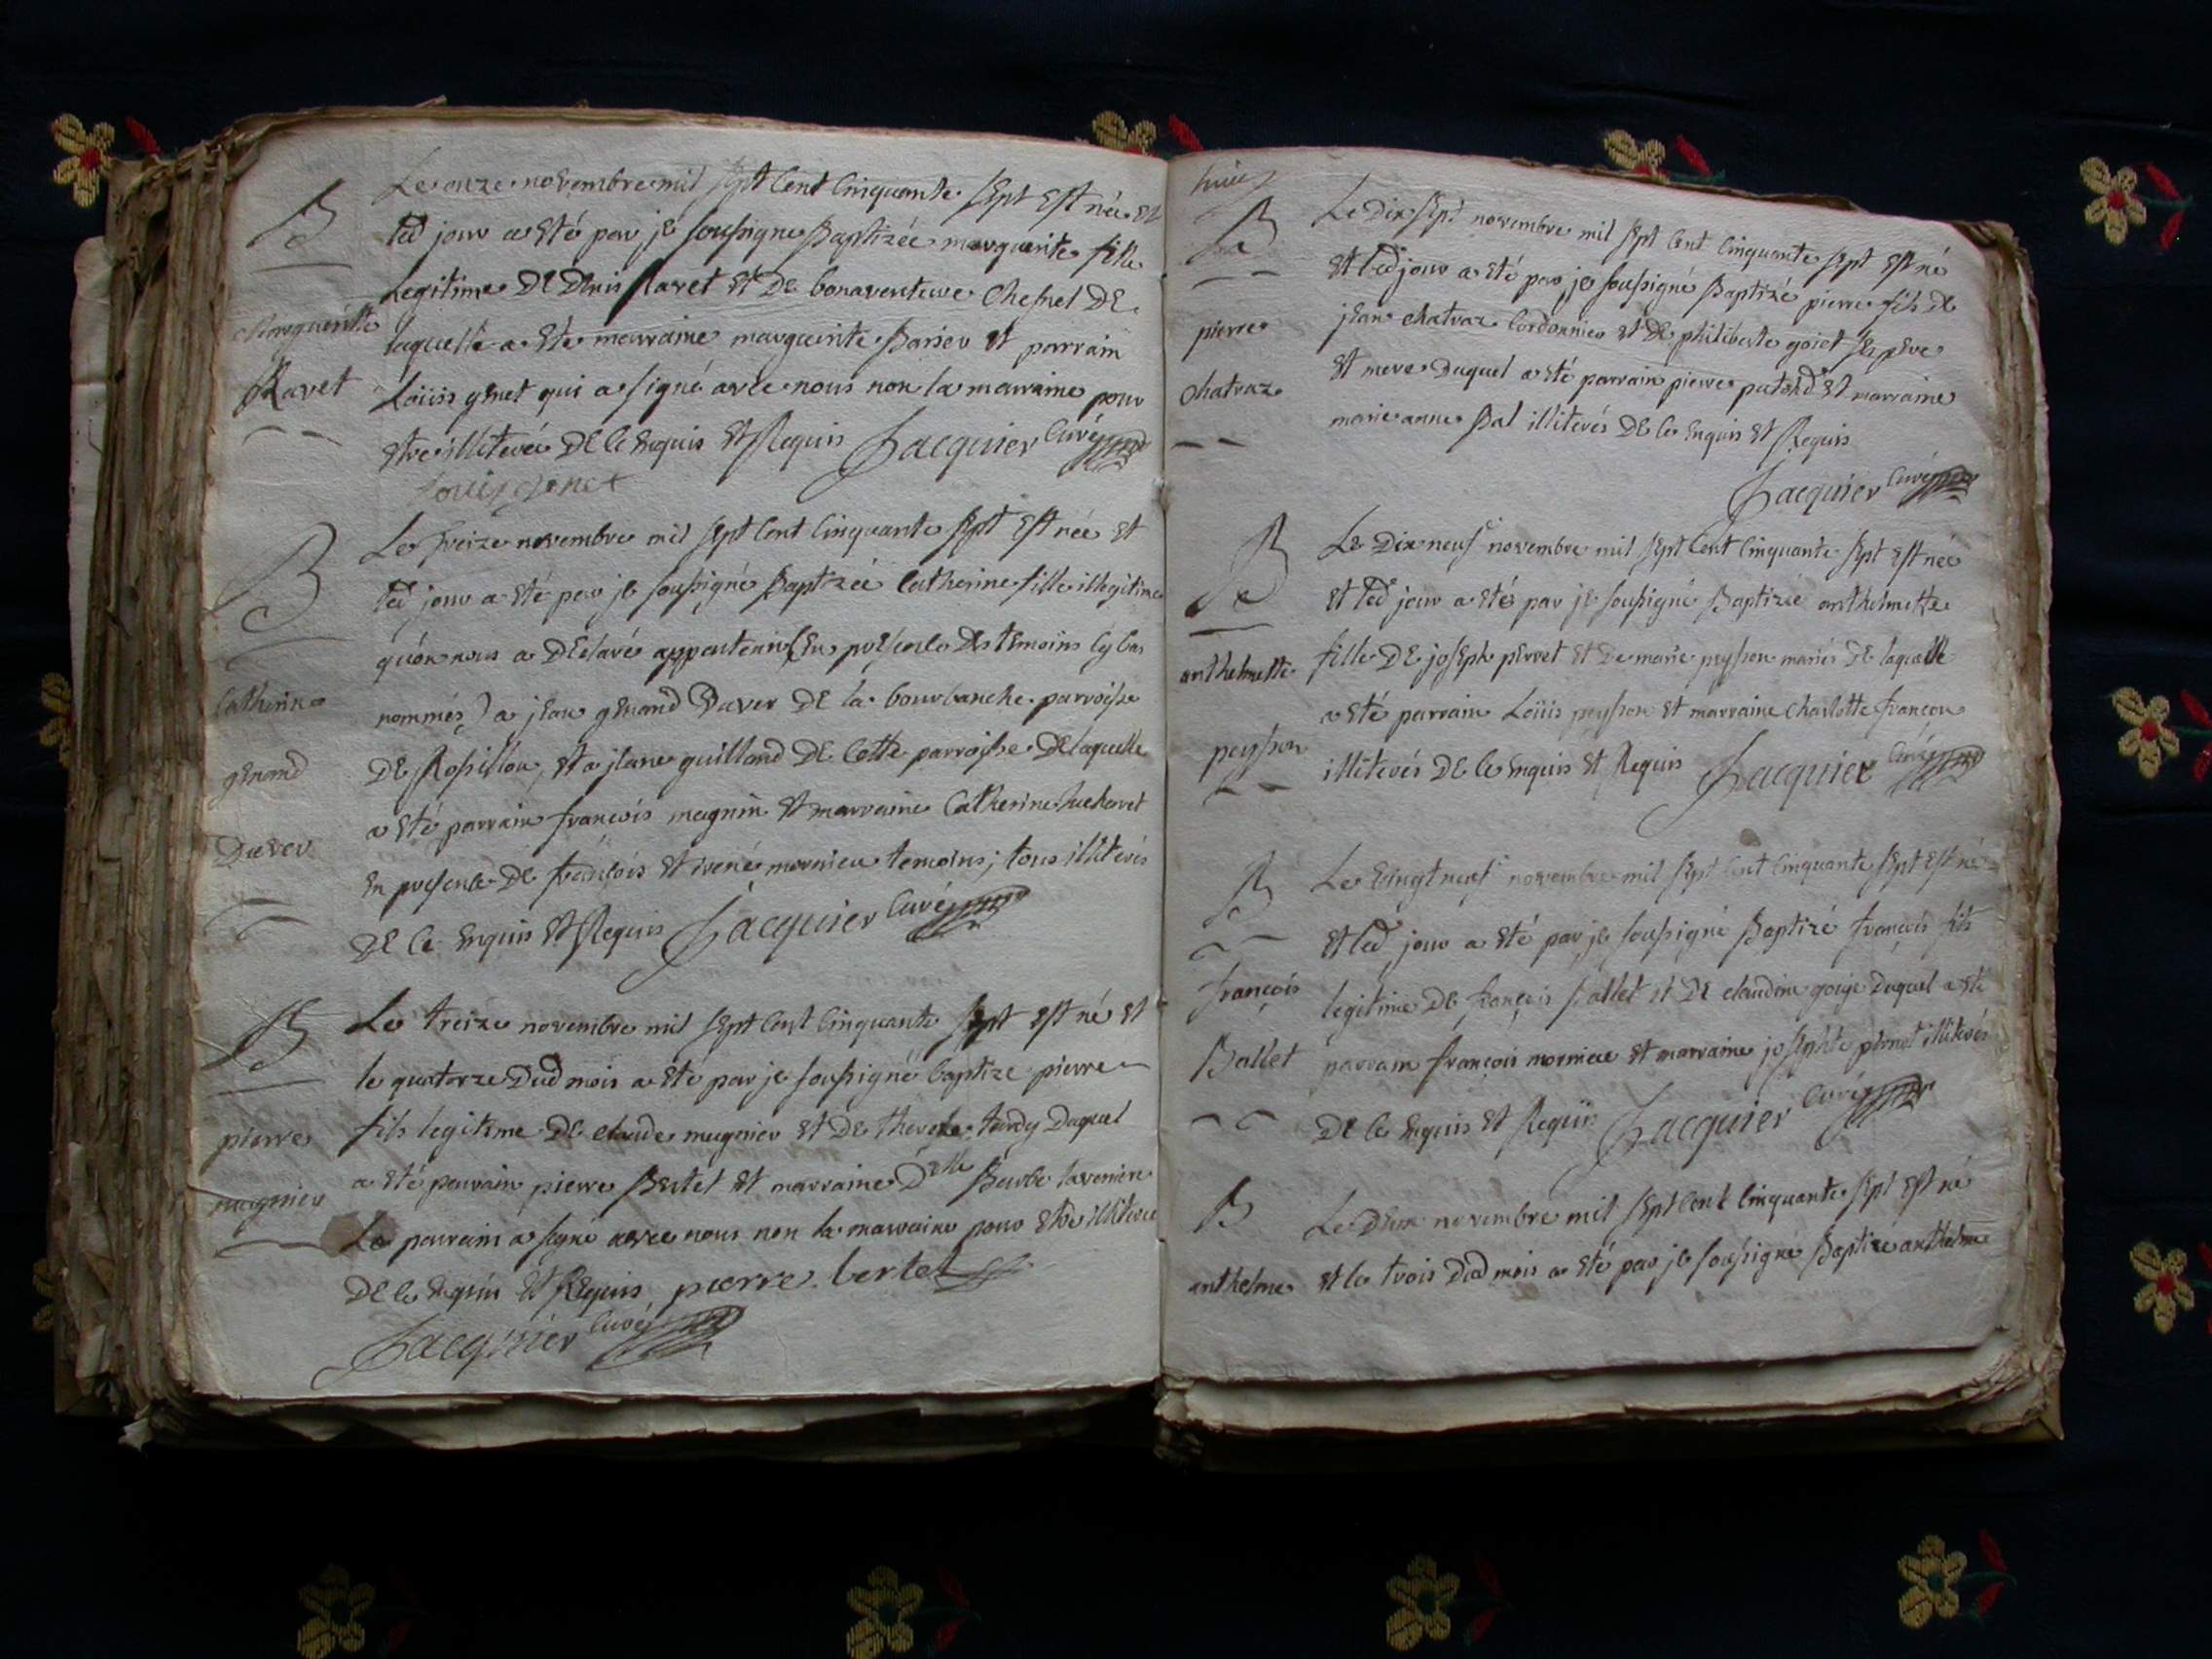 B
Margueritte
Ravet
Le onze novembre mil sept cent cinquante sept est née et
led jour a eté par je soussigne Baptizée marguerite fille
Legitime de denis Ravet et de bonaventure Chesnel de
laquelle a ete marraine marguerite et parrain
Loüis genet qui a signé avec nous non la marraine pour
etre illiterée de ce enquis et Requis Jacquier curé
Louis genet
B
Catherine
genand
Duver
Le treize novembre mil sept cent cinquante sept est née et
led jour a eté par je soussigné Baptizée Catherine fille illegitime
qu'on nous a declaré appartenir (en presence des temoins cy bas
nommés) a jean genand Duver de la bourbanche parroisse
de Rossillon, et a jeane guilland de cette parroisse de laquelle
a eté parrain francois magnin et marraine Catherine
en presence de francois et irené mornieu temoins, tous illiterés
de ce enquis et Requis Jacquier curé
B
pierre
mugnier
Le treize novembre mil sept cent cinquante sept est né et
le quatorze dud mois a eté par je soussigné baptize pierre
fils legitime de claude mugnier et de therese tardy duquel
a eté parrain pierre Bertet et marraine Dlle Barbe
Le parrain a signé avec nous non la marraine pour etre illiteree
de ce enquis et Requis pierre bertet
Jacquier curé
B
pierre
chatraz
Le Dix sept novembre mil sept cent cinquante sept est né
et led jour a eté par je soussigné Baptizé pierre fils de
jean chatraz cordonnier et de philiberte goiet ses pere
et mere duquel a eté parrain pierre et marraine
marie anne Bal illiterés de ce enquis et Requis
Jacquier curé
B
anthelmette
peysson
Le Dix neuf novembre mil sept cent cinquante sept est née
et led jour a eté par je soussigné Baptizée anthelmette
fille de joseph perret et de marie peysson mariés de laquelle
a eté parrain Loüis peysson et marraine charlotte françon
illiterés de ce enquis et Requis Jacquier curé
B
françois
Ballet
Le vingt neuf novembre mil sept cent cinquante sept est né
et led jour a eté par je soussigné Baptizé françois fils
legitime de françois Ballet et de claudine gojge duquel a eté
parrain françois mornieu et marraine josephte illiterés
de ce enquis et Requis Jacquier curé
B
anthelme
Le deux novembre mil sept cent cinquante sept est né
et le trois dud mois a eté par je soussigné Baptize anthelme